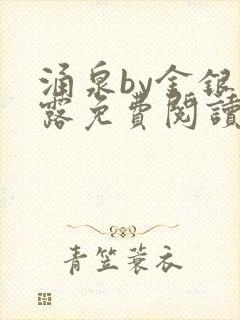 涌泉by金銀
露免費閱讀
青笠蓑衣